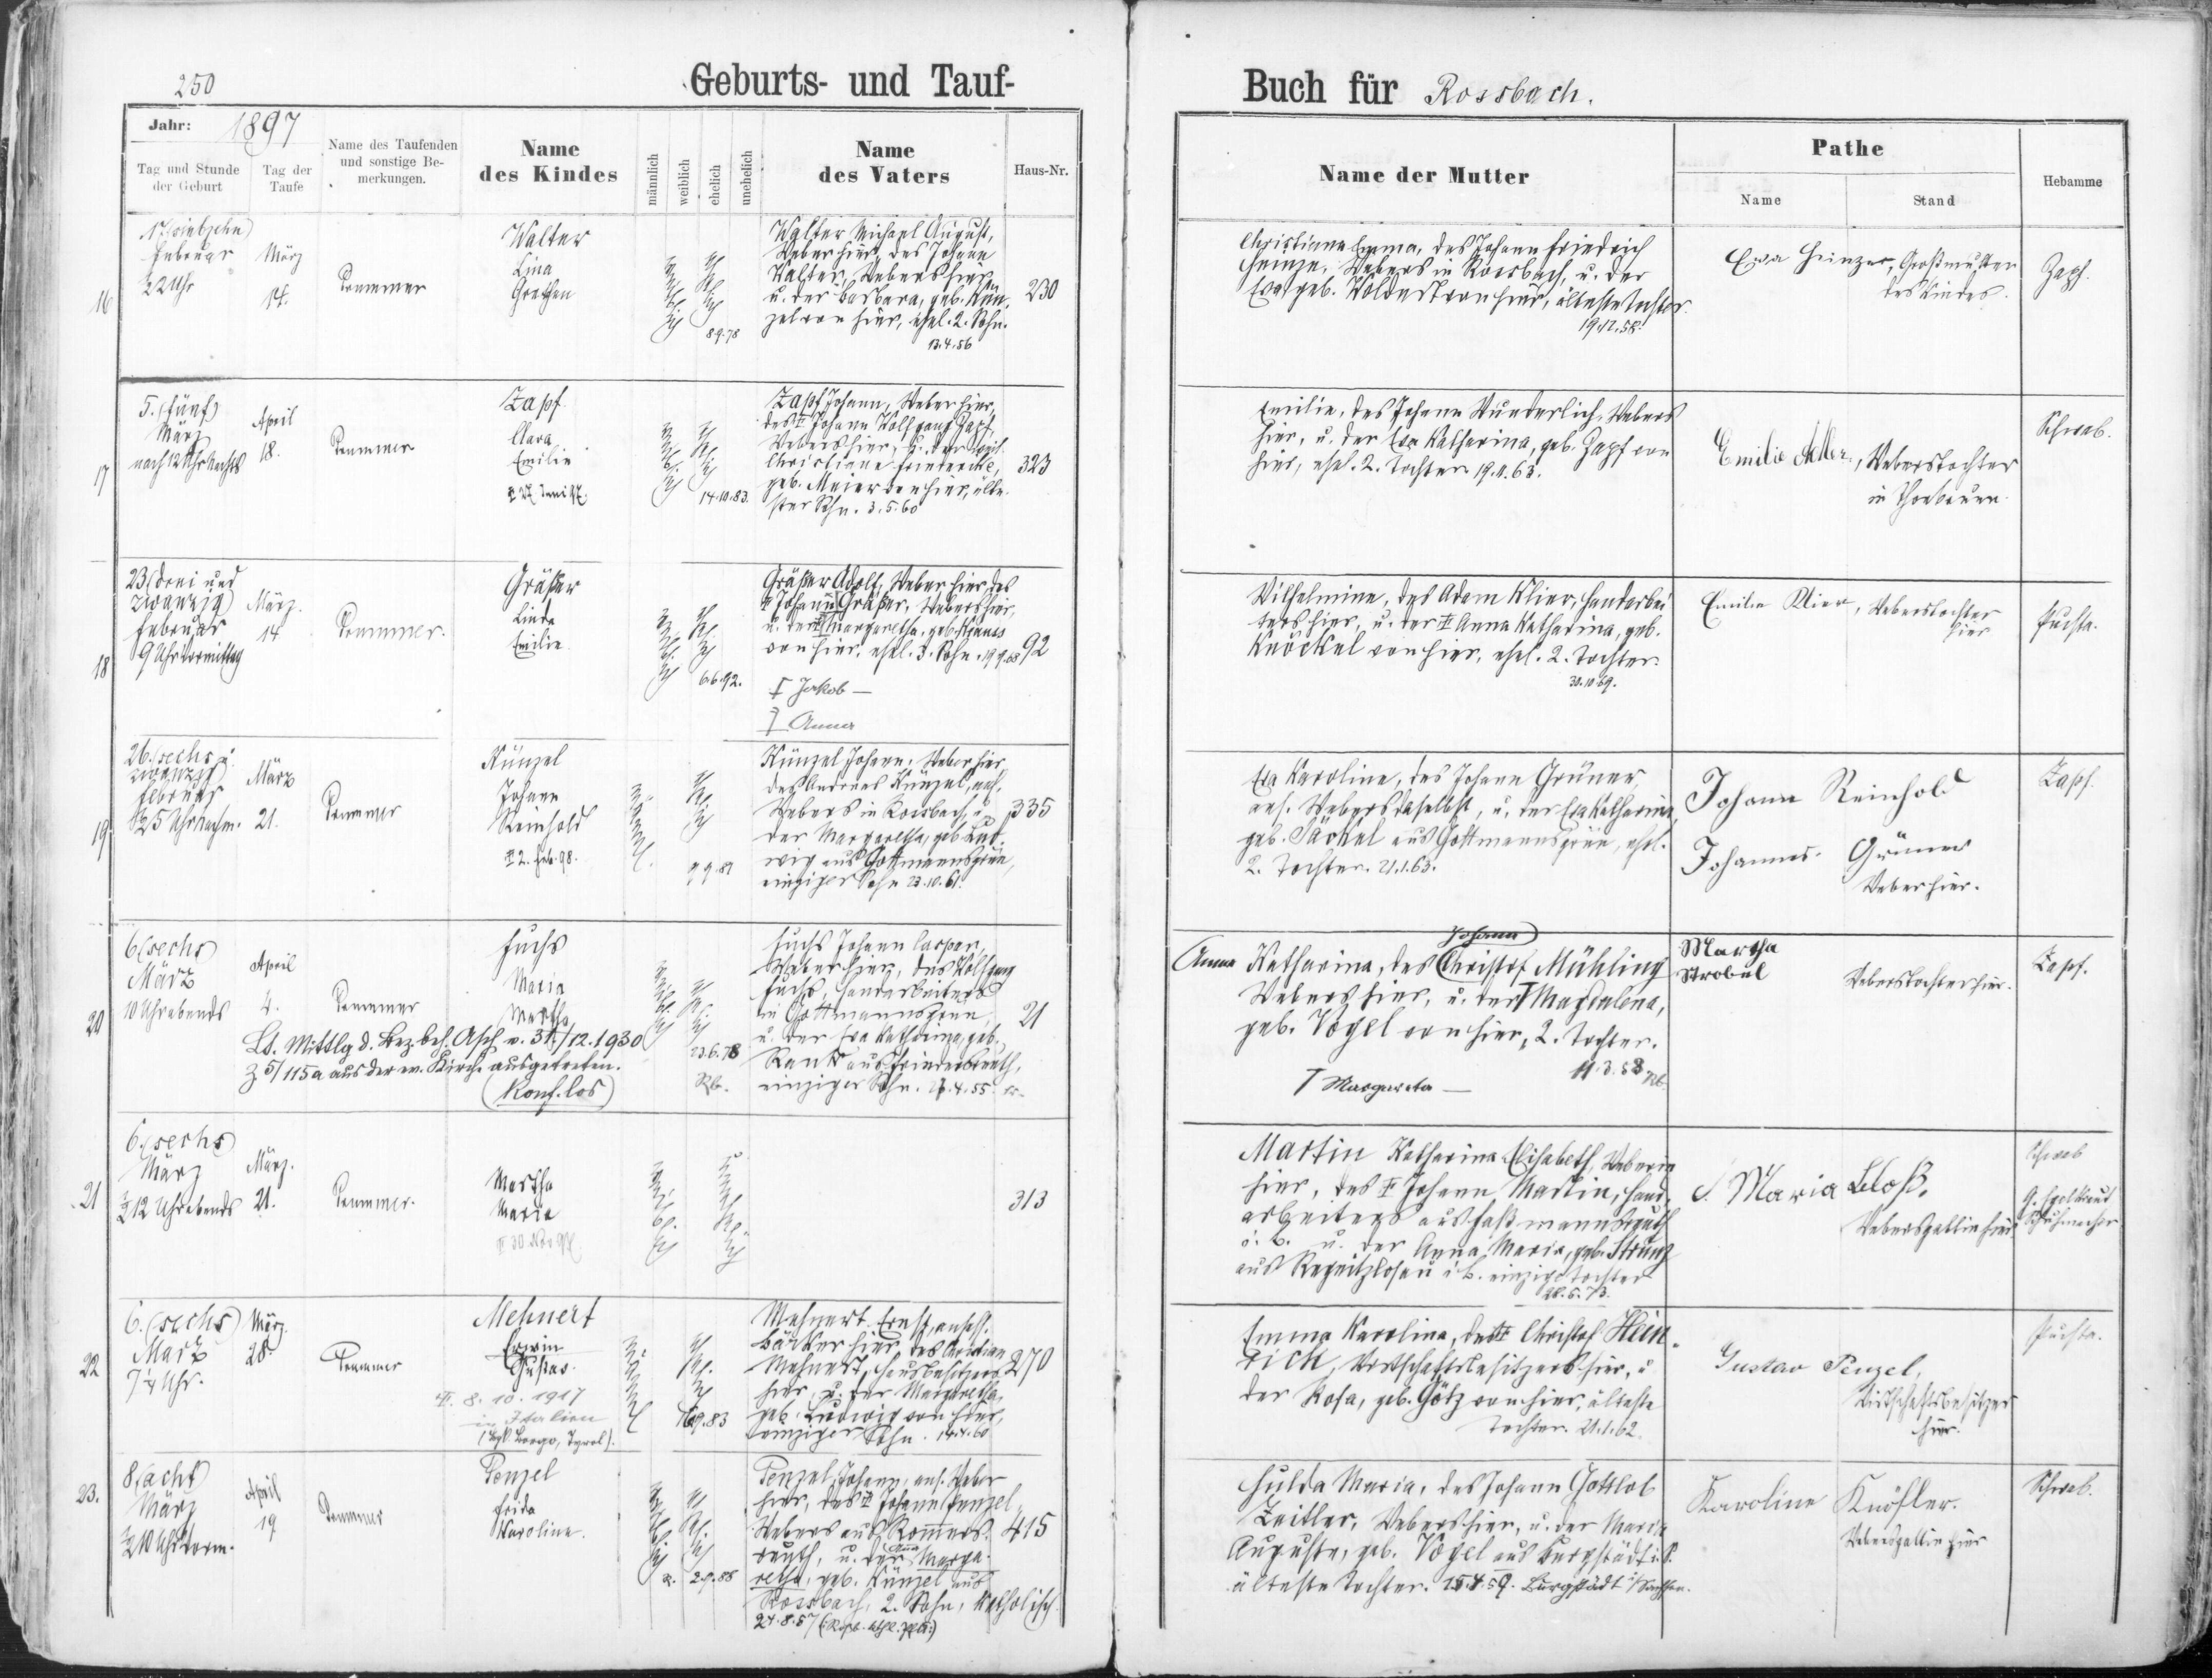 250
Geburts- und Tauf-
Buch für Rossbach.
Jahr: 1897
Tag und Stunde der Geburt
Tag der Taufe
Name des Taufenden und sonstige Bemerkungen.
Name des Kindes
männlich
weiblich
ehelich
unehelich
Name des Vaters
Haus-Nr.
Name der Mutter
Pathe
Name
Stand
Hebamme
16
17. (siebzehn)
Februar
März
14.
Pommer
Walter
Lina
Grethen
weiblich
ehelich
8.9.78
Walter Michael August,
Weber hier, des Johann
Walter, Webers hier,
u. der Barbara, geb. Kün-
zel von hier, ehel. 2. Sohn.
13.4.56
230
Christiana Emma, des Johann Friedrich
Heinze, Webers in Rossbach, u. der
Eva geb. Woldert von hier, älteste Tochter.
19.12.58.
Eva Heinze, Großmutter
des Kindes.
Zapf.
17
5. (fünf)
März
nach 12 Uhr Nachts
April
18.
Pommer
Zapf
Clara
Emilie
weiblich
ehelich
14.10.83.
Zapf Johann, Weber hier,
des Johann Wolfgang Zapf,
Webers hier, u. der
Christiane Friedericke,
geb. Meier von hier, älte-
ster Sohn. 3.5.60
323
Emilie, des Johann Wunderlich, Webers
hier, u. der Eva Katharina, geb. Zapf von
hier, ehel. 2. Tochter 19.11.63.
Emilie Adler, Weberstochter
in Thonbrunn.
Schwab.
18
23. (drei und
zwanzig)
Februar
9 Uhr Vormittag
März.
14
Pommer.
Gräßer
Linda
Emilie
weiblich
ehelich
6.6.92.
Gräßer Adolf, Weber hier, des
Johann Gräßer, Webers hier,
u. der Margaretha, geb. Krauss
von hier, ehel. 3. Sohn. 19.9.68
92
Jakob —
Anna
Wilhelmine, des Adam Klier, Handarbei-
ters hier, u. der Anna Katharina, geb.
Knöckel von hier, ehel. 2. Tochter.
30.10.69.
Emilie Klier, Weberstochter
hier
Puchta.
19
26. (sechs u.
zwanzig)
Februar
1/2 5 Uhr Nachm.
März
21.
Pommer
Künzel
Johann
Reinhold
2. Feb. 98.
männl.
ehelich
9.9.81
Künzel Johann, Weber hier,
des Andreas Künzel, ans.
Webers in Rossbach, u.
der Margaretha, geb. Lud-
wig aus Gottmannsgrün,
einziger Sohn 23.10.61.
335
Eva Karoline, des Johann Grüner,
ans. Webers daselbst, u. der Eva Katharina,
geb. Jäckel aus Gottmannsgrün, ehel.
2. Tochter. 21.1.63.
Johann Reinhold
Johannes Grüner
Weber hier.
Zapf.
20
6. (sechs)
März
10 Uhr abends
April
4.
Pommer
Fuchs
Maria
Martha
weiblich
ehelich
23.6.78
Rb.
Lt. Mittlg d. Bez. beh. Asch v. 31./12.1930
Z 5/115a aus der ev. Kirche ausgetreten.
(Konf.los)
Fuchs Johann Caspar,
Weber hier, des Wolfgang
Fuchs, Handarbeiters
in Gottmannsgrün,
u. der Eva Katharina, geb.
Rank aus Friedersreuth,
einziger Sohn. 27.4.55
21
Johann
Anna Katharina, des Christof Mühling
Webers hier, u. der Magdalena,
geb. Vogel von hier, 2. Tochter.
11.3.53 Rb.
Margareta —
Martha
Strobel
Weberstochter hier.
Zapf.
21
6. (sechs)
März
1/2 12 Uhr abends
März.
21.
Pommer.
Martha
Maria
weibl.
unehelich
313
Martin Katharina Elisabeth, Weberin
hier, des Johann Martin, Hand-
arbeiters aus Faßmannsreuth
i. B. u. der Anna Maria, geb. Strunz
aus Regnitzlosau i. B. einzige Tochter
28.5.73.
Maria Bloß,
Webersgattin hier
Schwab
22
6. (sechs)
März
7 1/4 Uhr.
März.
28.
Pommer
Mehnert
Erwin
Gustav.
8.10.1917
in Italien
(Borgo, Tyrol).
männl.
ehel.
16.9.83
Mehnert Ernst, ansäss.
Bäcker hier, des Kristian
Mehnert, Hausbesitzers
hier, u. der Margaretha,
geb. Ludwig von hier,
einziger Sohn. 14.4.60
270
Emma Karoline, des Christof Hein-
rich, Wirtschaftsbesitzers hier, u.
der Rosa, geb. Götz von hier, älteste
Tochter. 21.1.62.
Gustav Penzel,
Wirtschaftsbesitzer
hier.
Puchta.
23.
8. (acht)
März
1/2 10 Uhr Vorm.
April
19
Pommer
Penzel
Frida
Karoline.
weiblich
ehel.
2.9.88
Penzel, Johann, ans. Weber
hier, des Johann Penzel,
Webers aus Rommers-
reuth, u. der Anna Marga-
retha, geb. Künzel aus
Rossbach, 2. Sohn, katholisch.
24.8.57
415
Hulda Maria, des Johann Gottlob
Zeitler, Webers hier, u. der Maria
Auguste, geb. Vogel aus Burgstädt i. S.
älteste Tochter. 15.4.59. Burgstädt i/Sachsen.
Karoline Knöfler.
Webersgattin hier
Schwab.